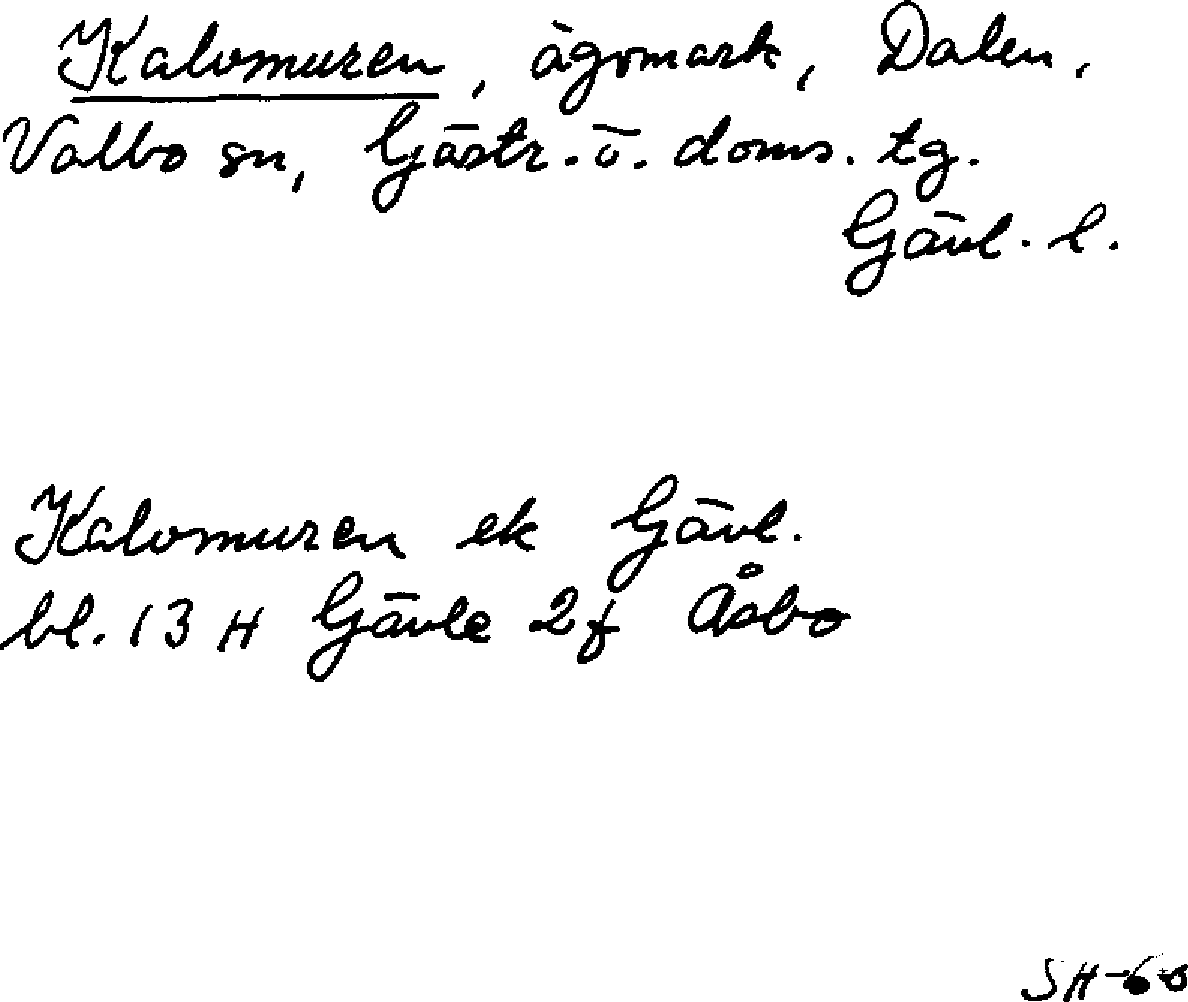 Kalvmuren, ägomark, Dalen,
Valbo sn, Gästr. ö. doms. tg.
Gävl. l.
Kalvmuren ek Gävl.
bl. 13 H Gävle 2f Åsbo
SH-68